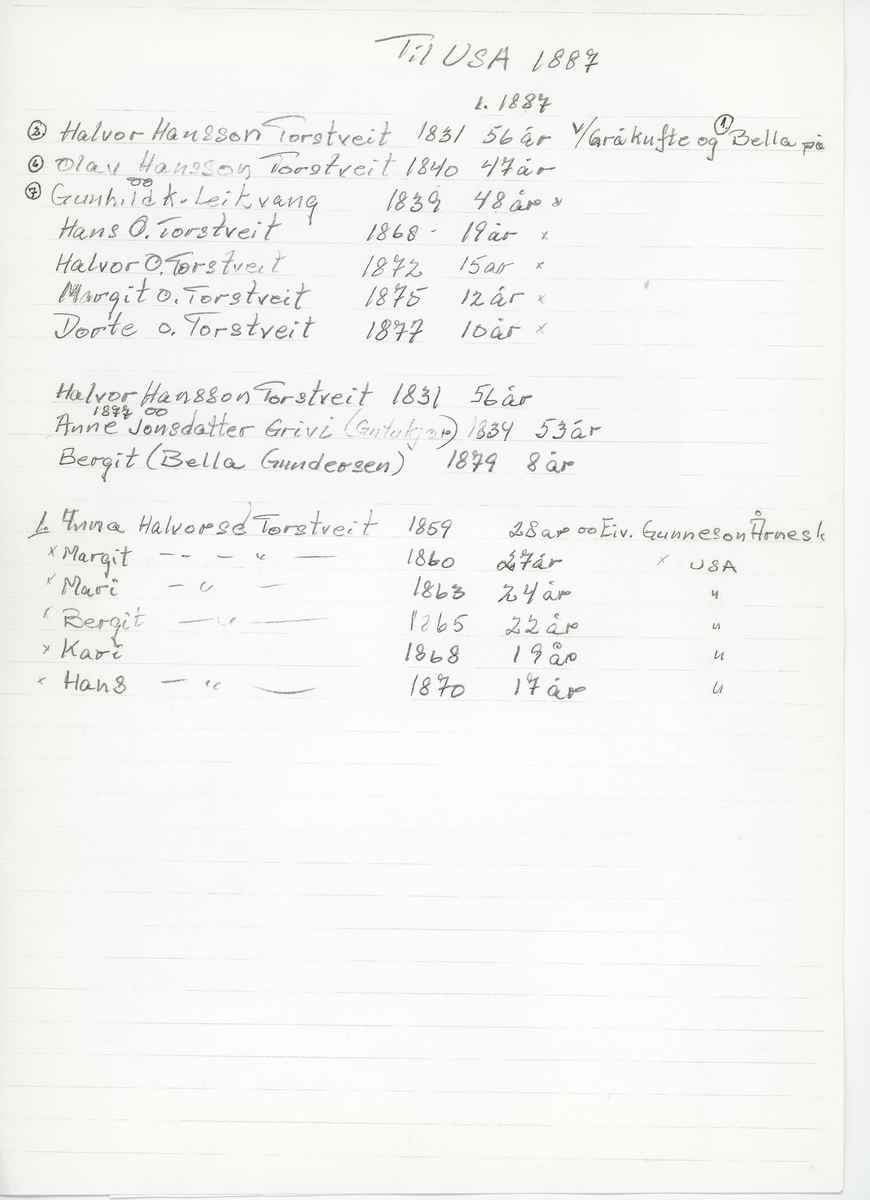 Til USA 1887
1. 1887
② Halvor Hansson Torstveit 1831 56 år v/Gråkufte og ① Bella på
⑥ Olav Hansson Torstveit 1840 47 år
oo
⑦ Gunhild K. Leikvang 1839 48 år x
Hans O. Torstveit 1868 - 19 år x
Halvor O. Torstveit 1872 15 ar x
Margit O. Torstveit 1875 12 år x
Dorte O. Torstveit 1877 10 år x
Halvor Hansson Torstveit 1831 56 år
1877 oo
Anne Jonsdatter Grivi 1834 53 år
Bergit (Bella Gundersen) 1879 8 år
1. Anna Halvorsd Torstveit 1859 28 ar oo Eiv. Gunneson Årnesk
x Margit - - - " — 1860 27 år x USA
x Mari — " — 1863 24 år "
x Bergit — " — 1865 22 år "
x Kari 1868 19 år "
x Hans — " — 1870 17 år "